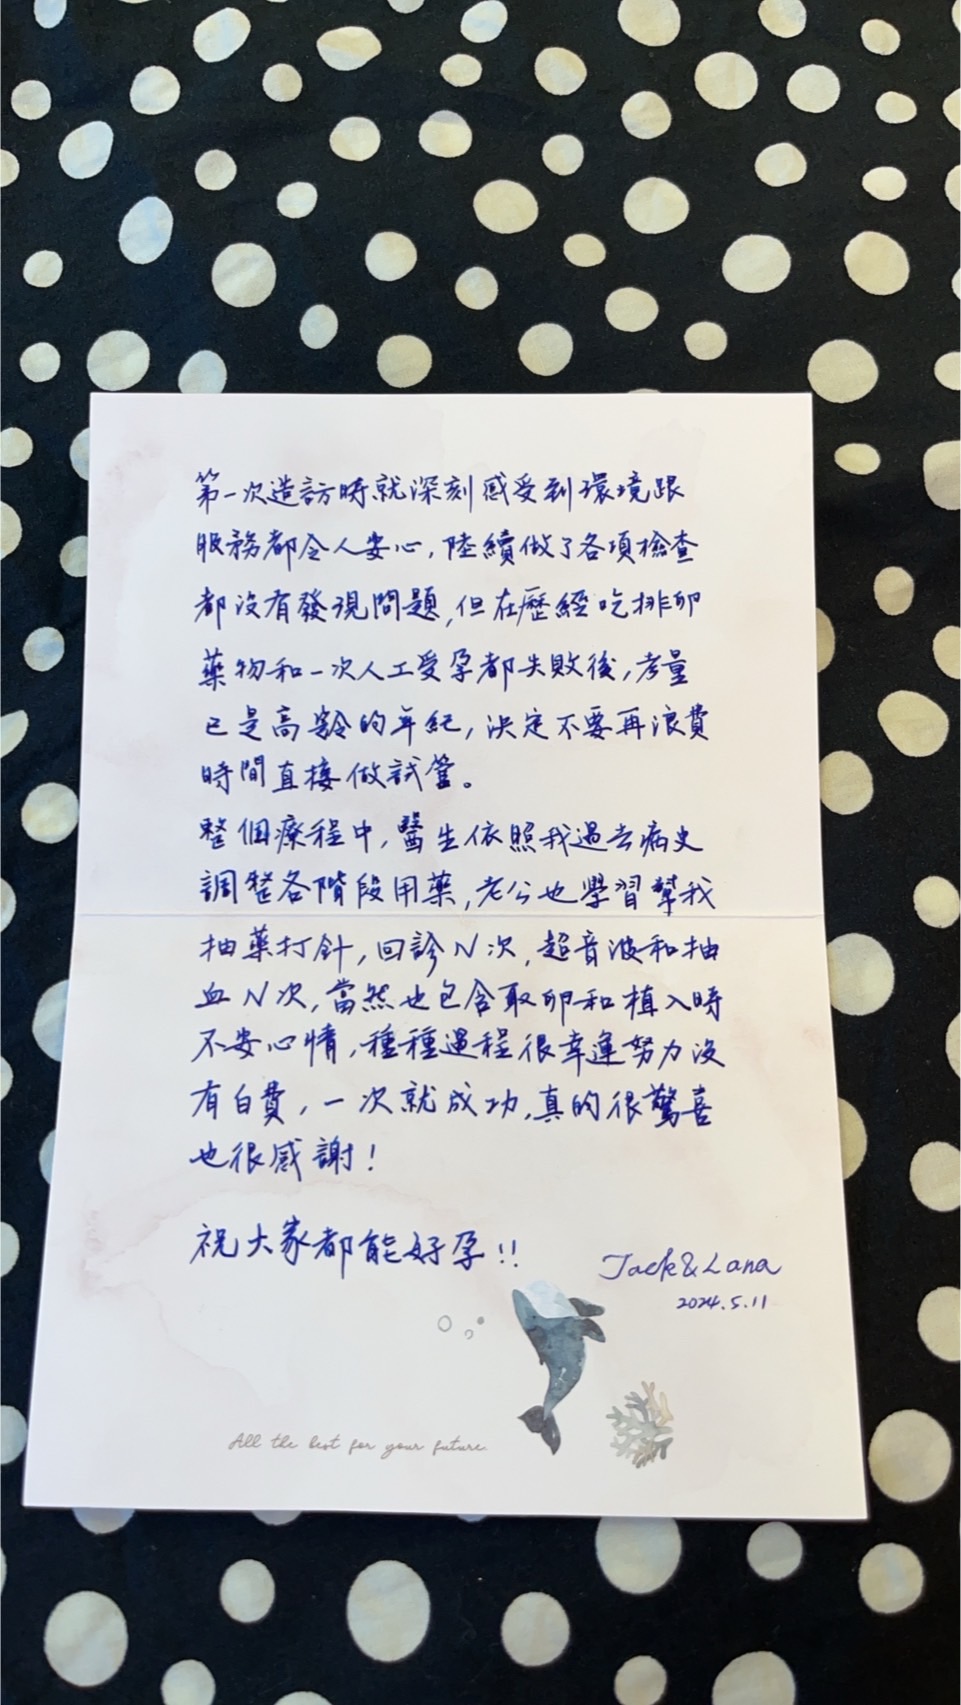 第一次造訪時就深刻感受到環境跟
服務都令人安心，陸續做了各項檢查
都沒有發現問題，但在歷經吃排卵
藥物和一次人工受孕都失敗後，考量
已是高齡的年紀，決定不要再浪費
時間直接做試管。
整個療程中，醫生依照我過去病史
調整各階段用藥，老公也學習幫我
抽藥打針，回診N次，超音波和抽
血N次，當然也包含取卵和植入時
不安心情，種種過程很幸運努力沒
有白費，一次就成功，真的很驚喜
也很感謝！
祝大家都能好孕！！
Jack&Lana
2024.5.11
All the best for your future.